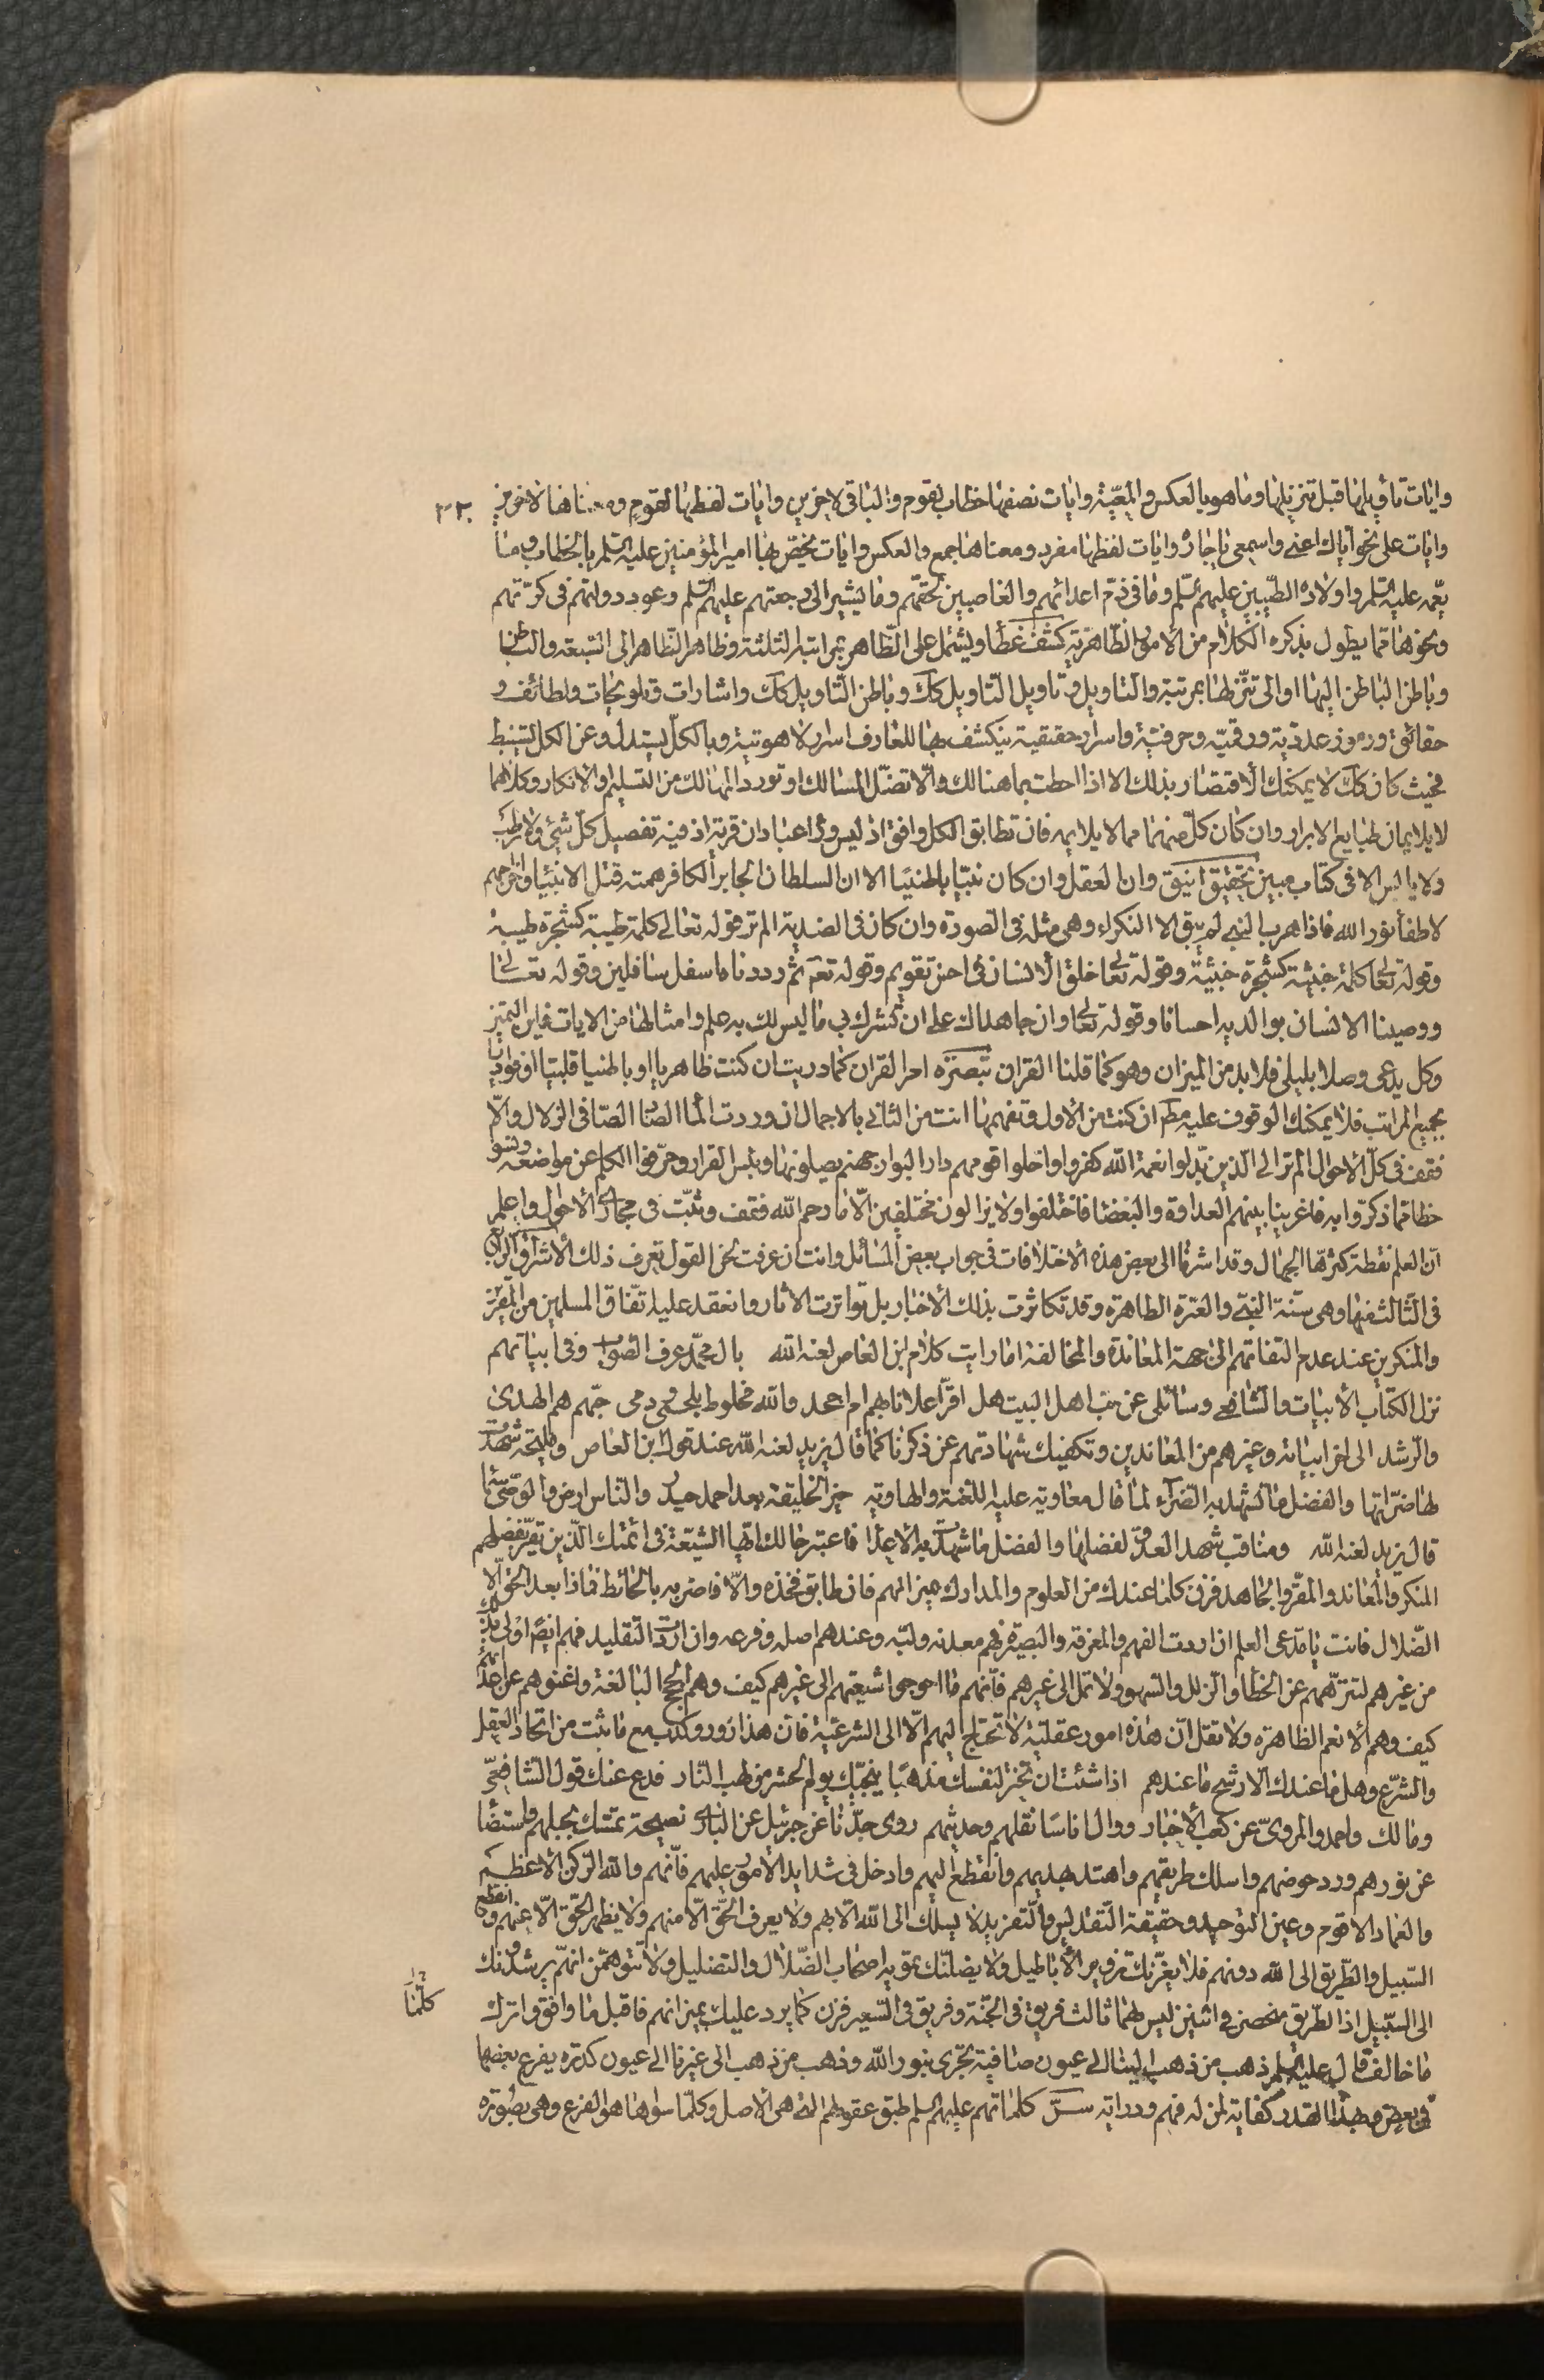 وايات تأويلها قبل تنزيلها وما هو بالعكس والمعيّة وايات نصفها خطاب لقوم والباقى لاخرين وايات لفظها لقوم و معناها لاخرين ٣٢
وايات على نحو اياك اعنى واسمعى يا جاره وايات لفظها مفرد ومعناها جمع والعكس وايات يختص بها امير المؤمنين عليه السّلم بالخطاب ومنا
يعمّه عليه السّلم واولاده الطّيبين عليهم السّلم وما فى ذمّ اعدائهم والغاصبين لحقّهم وما يشير الى رجعتهم عليهم السّلم وعود دولتهم فى كرّتهم
ونحوها ممّا يطول بذكره الكلام من الامور الظّاهريّة كشف غطا ويشتمل على الظّاهر بمراتبه الثلثة وظاهر الظّاهر الى السّبعة والباطن
وباطن الباطن اليها او الى تنزّلها بمرتبة والتاويل وتاويل التاويل كك وباطن التّاويل كك واشارات وتلويحات ولطائف و
حقائق ورموز عدديّة ورقميّه وحرفيّة واسرار حقيقية ينكشف بها للعارف اسرار لاهوتية وبالكلّ يستدلّ وعن الكل يستنبط
فحيث كان كك لا يمكنك الاقتصار بذلك الا اذا احطت بما هنالك والّا تضلّ المسالك او تورد المهالك من التسليم والانكار وكلاهما
لا يلايمان طبايع الابرار وان كان كلّ منهما مما لا يلايمه فان تطابق الكل وافق اذ ليس ورآء عبادان قرية اذ فيه تفصيل كلّ شئ ولا رطب
ولا يابس الا فى كتاب مبين تحقيق انيق وان العقل وان كان نبيّا باطنيّا الا ان السلطان الجابر الكافر همته قتل الانبيا واخراجهم
لاطفاء نور الله فاذا هرب النبى لم يبق الا النكراء وهى مثله فى الصورة وان كان فى الضدية الم تر قوله تعالى كلمة طيبة كشجرة طيبة
وقوله تعا كلمة خبيثة كشجرة خبيثة وقوله تعا خلق الانسان فى احسن تقويم وقوله تعم ثم رددناه اسفل سافلين وقوله تعالى
ووصينا الانسان بوالديه احسانا وقوله تعا وان جاهداك على ان تشرك بى ما ليس لك به علم وامثالها من الايات فاين التميز
وكل يدعى وصلا بليلى فلا بد من الميزان وهو كما قلنا القران تبصرة امر القران كما دريت ان كنت ظاهريا او باطنيا قلبيّا او فؤاديا
بجميع المراتب فلا يمكنك الوقوف عليه مط ان كنت من الاول وتفهمها انت من الثانى بالاجمال ان وردت الماء الصّافى الزلال والّا
فقف فى كلّ الاحوال الم تر الى الّذين بدّلوا نعمة الله كفرا واحلوا قومهم دار البوار جهنم يصلونها وبئس القرار وحرّفوا الكلم عن مواضعه ونسوا
حظّا ممّا ذكرّوا به فاغرينا بينهم العداوة والبغضا فاختلفوا ولا يزالون مختلفين الّا ما رحم الله فتقف وتثبّت فى مجارى الاحوال واعلم
انّ العلم نقطة كثرّها الجهّال وقد اشرنا الى بعض هذه الاختلافات فى جواب بعض المسائل وانت ان عرفت لحن القول تعرف ذلك الاشراق الرابع
فى الثّالث منها وهى سنّة النبىّ والعترة الطاهرة وقد تكاثرت بذلك الاخبار بل تواترت الاثار وانعقد عليه اتّفاق المسلمين من المقرّين
والمنكرين عند عدم التفاتهم الى جهة المعاندة والمخالفة اما رايت كلام ابن العاص لعنه الله بال محمّد عرف الصّواب وفى ابياتهم
نزل الكتاب الابيات والشافعى وسائلى عن حبّ اهل البيت هل اقرّا علانا بهم ام اجحد والله مخلوط بلحمى ودمى حبّهم هم الهدى
والرّشد الى اخر ابياته وغيرهم من المعاندين وتكفيك شهادتهم عن ذكرنا كما قال يزيد لعنه الله عند قول ابن العاص ومليحة شهدت
لها ضرّاتها والفضل ما شهد به الضّرآء لمّا قال معاوية عليه اللعنة والهاوية خير الخليقة بعد احمد حيدر والنّاس ارض والوصّى سما
قال يزيد لعنه الله ومناقب شهد العدوّ لفضلها والفضل ما شهدت به الاعدا فاعتبر حالك ايّها الشّيعة فى ائمّتك الّذين يقرّ بفضلهم
المنكر والمعاند والمقرّ والجاهد فزن كلما عندك من العلوم والمدارك بميزانهم فان طابق فخذه والّا فاضربه بالحائط فماذا بعد الحق الّا
الضّلال فانت يا مدّعى العلم ان اردت الفهم والمعرفة والبصيرة فهم معدنه ولبّه وعندهم اصله وفرعه وان اردت التقليد فهم ايضا اولى بذلك
من غيرهم لتنزّههم عن الخطأ والزلل والسّهو ولا تمل الى غيرهم فانّهم ما احوجوا شيعتهم الى غيرهم كيف وهم الحجج البالغة واغنوهم عن
كيف وهم الانعم الظاهرة ولا تقل انّ هذه امور عقليّة لا تحتاج اليهم الّا الى الشرعيّة فان هذا زور وكذب مع ما ثبت من اتحاد العقل
والشّرع وهل ما عندك الّا رشح ما عندهم اذا شئت ان تختر لنفسك مذهبا ينجّيك يوم الحشر من لهب النّار فدع عنك قول الشافعىّ
ومالك واحمد والمروىّ عن كعب الاخبار ووال اناسا نقلهم وحديثهم روى جدّنا عن جبرئيل عن البارى نصيحة تمسّك بحبلهم واستضأ
عن نورهم ورد حوضهم واسلك طريقهم واهتد بهديهم وانقطع اليهم وادخل فى شدايد الامور عليهم فانّهم والله الرّكن الاعظم
والعماد الاقوم وعين التوحيد وحقيقة التّقديس والتّفريد لا يسلك الى الله الّا بهم ولا يعرف الحقّ الّا منهم ولا يظهر الحقّ الّا عنهم وقد انقطع
السّبيل والطّريق الى الله دونهم فلا يغرّنك تزوير الاباطيل ولا يضلّنّك تمويه اصحاب الضّلال والتضليل ولا تتوهّمن انهم يرشدونك
الى السّبيل اذ الطّريق منحصر فى اثنين ليس لهما ثالث فريق فى الجنّة وفريق فى السّعير فزن كما يرد عليك بميزانهم فاقبل ما وافق واترك كلّما
ما خالف قال عليه السّلم ذهب من ذهب الينا الى عيون صافية تجرى بنور الله وذهب من ذهب الى غيرنا الى عيون كدرة يفرغ بعضها
فى بعض وبهذا القدر كفاية لمن له فهم ودراية سرّ كلماتهم عليهم السلم طبق عقولهم الّتى هى الاصل وكلّما سواها هو الفرع وهى بصورة